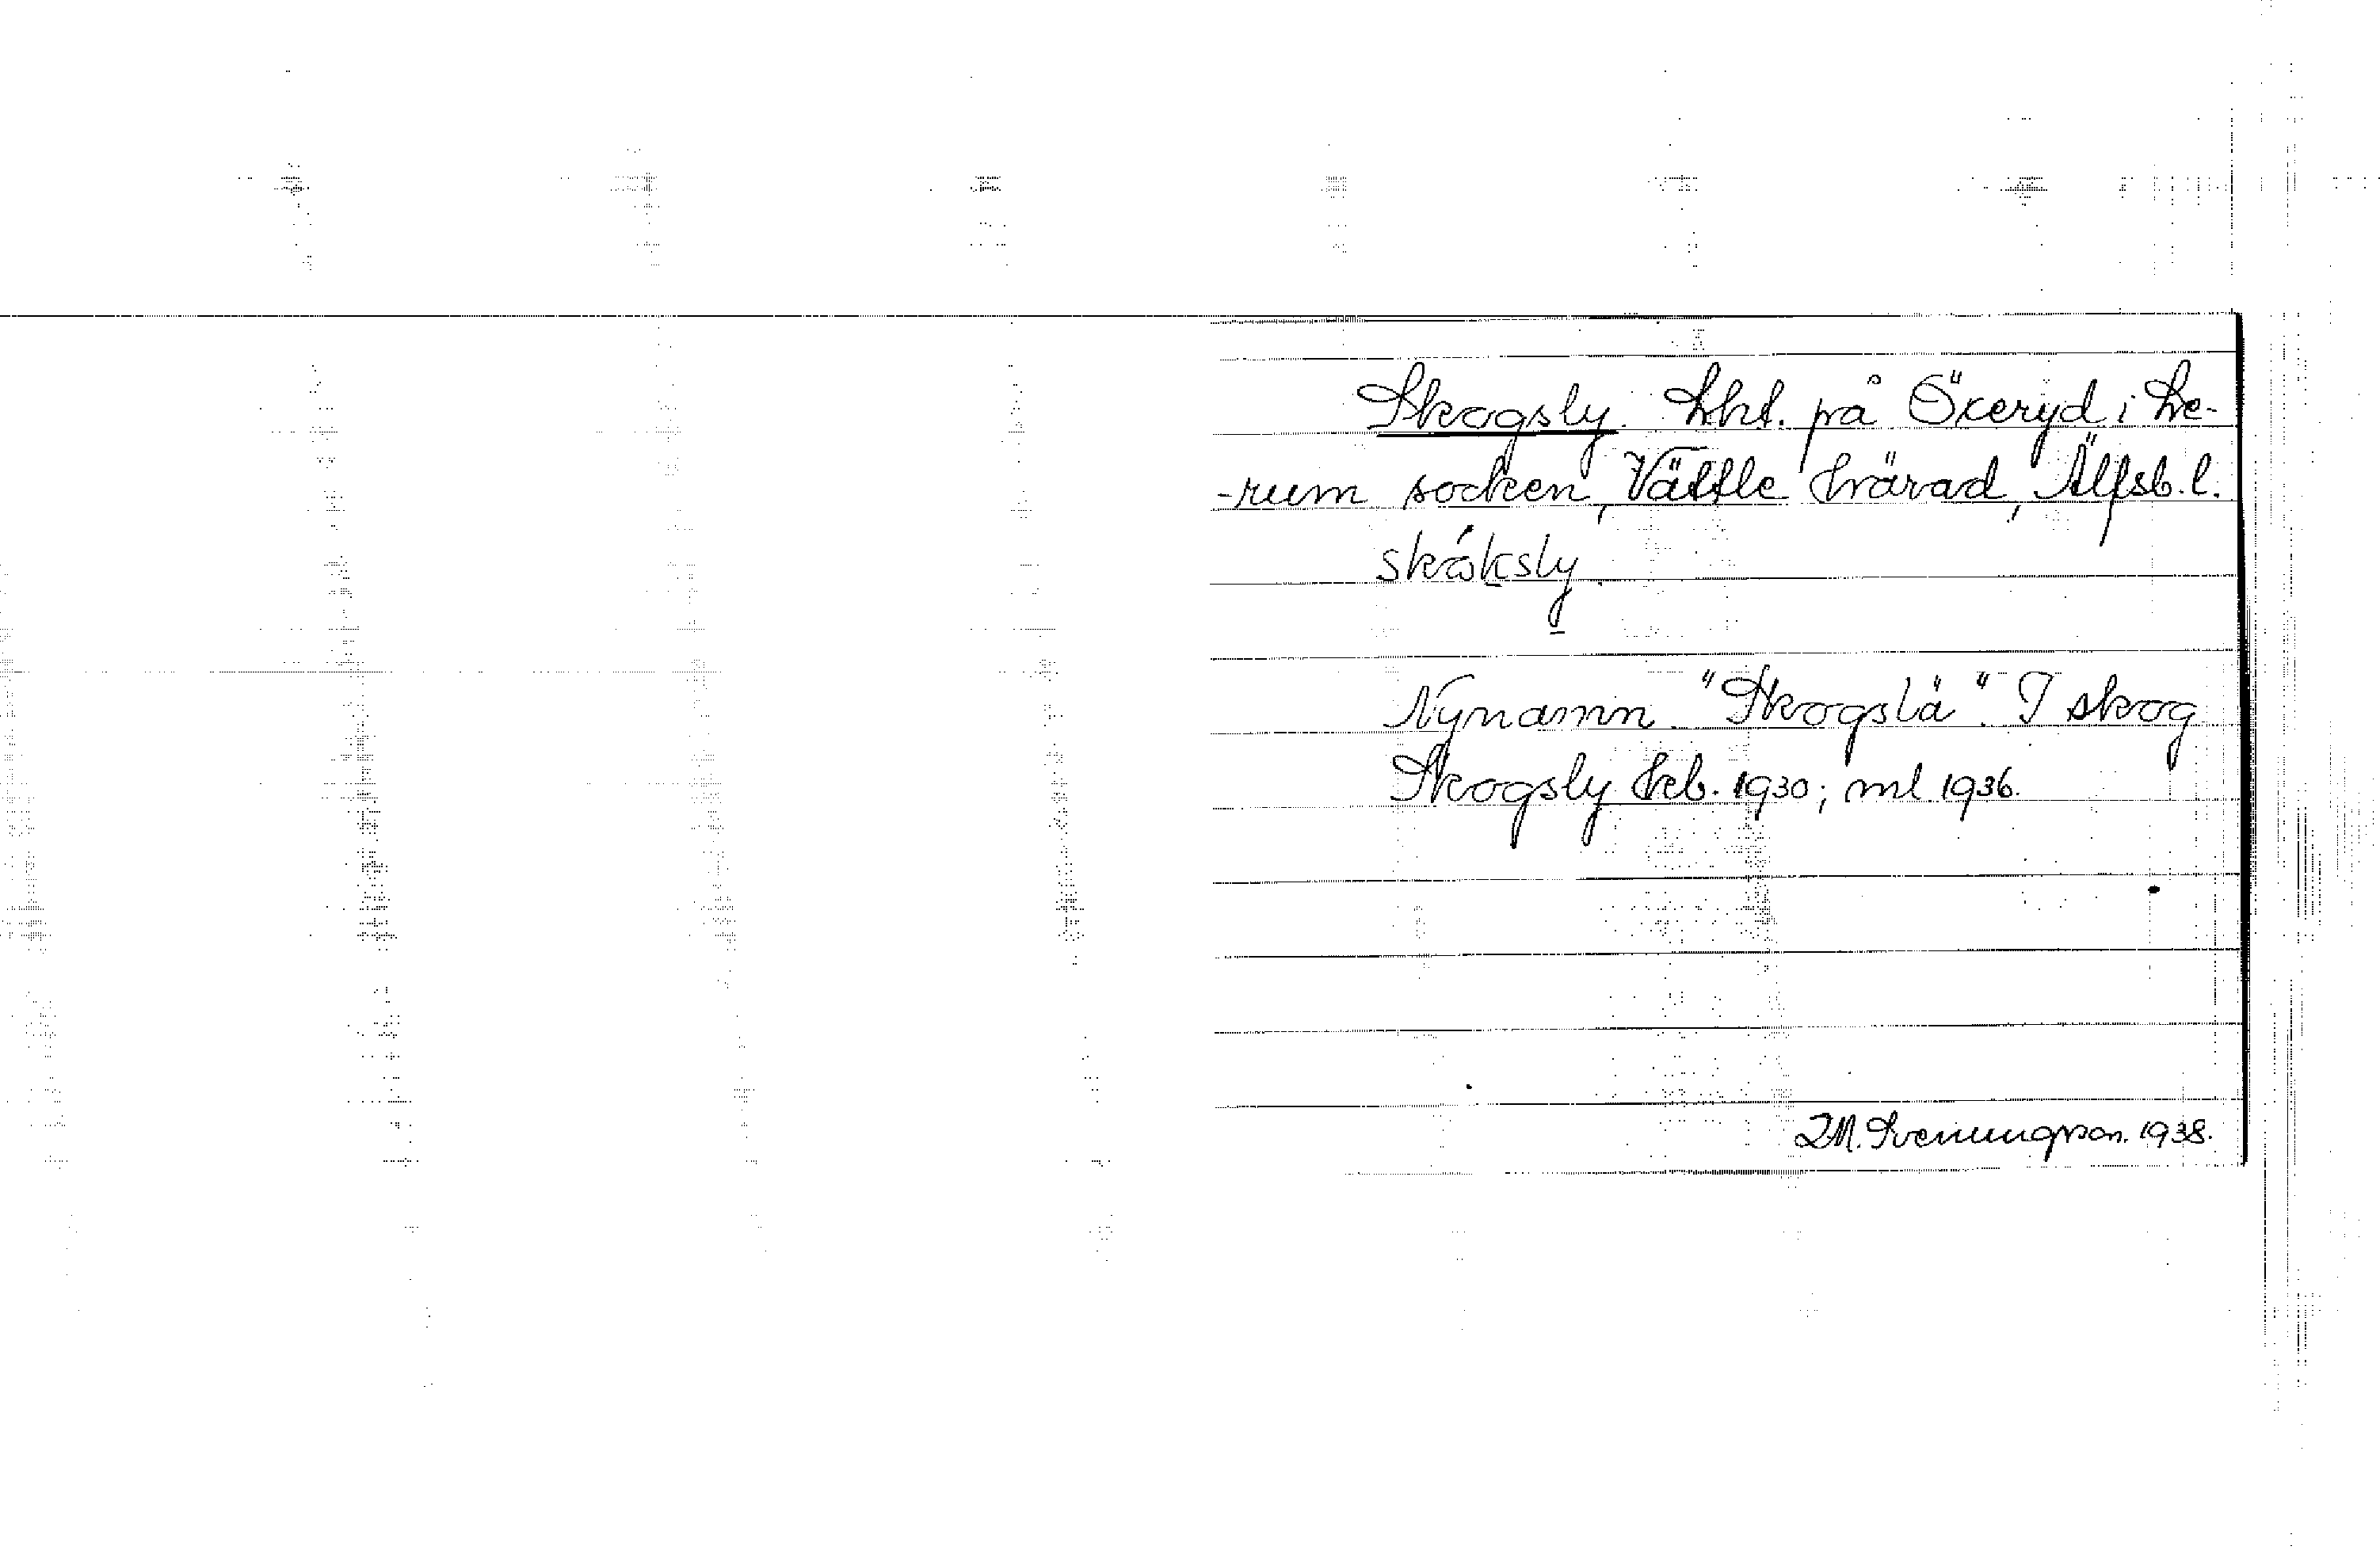 Skogsly. Lht. på Öxeryd i Le-
-rum socken, Vättle härad, Älfsb. l.
skåksly.
Nynamn. "Skogslä". I skog
Skogsly kb. 1930; ml 1936.
IM. Svenungsson. 1938.